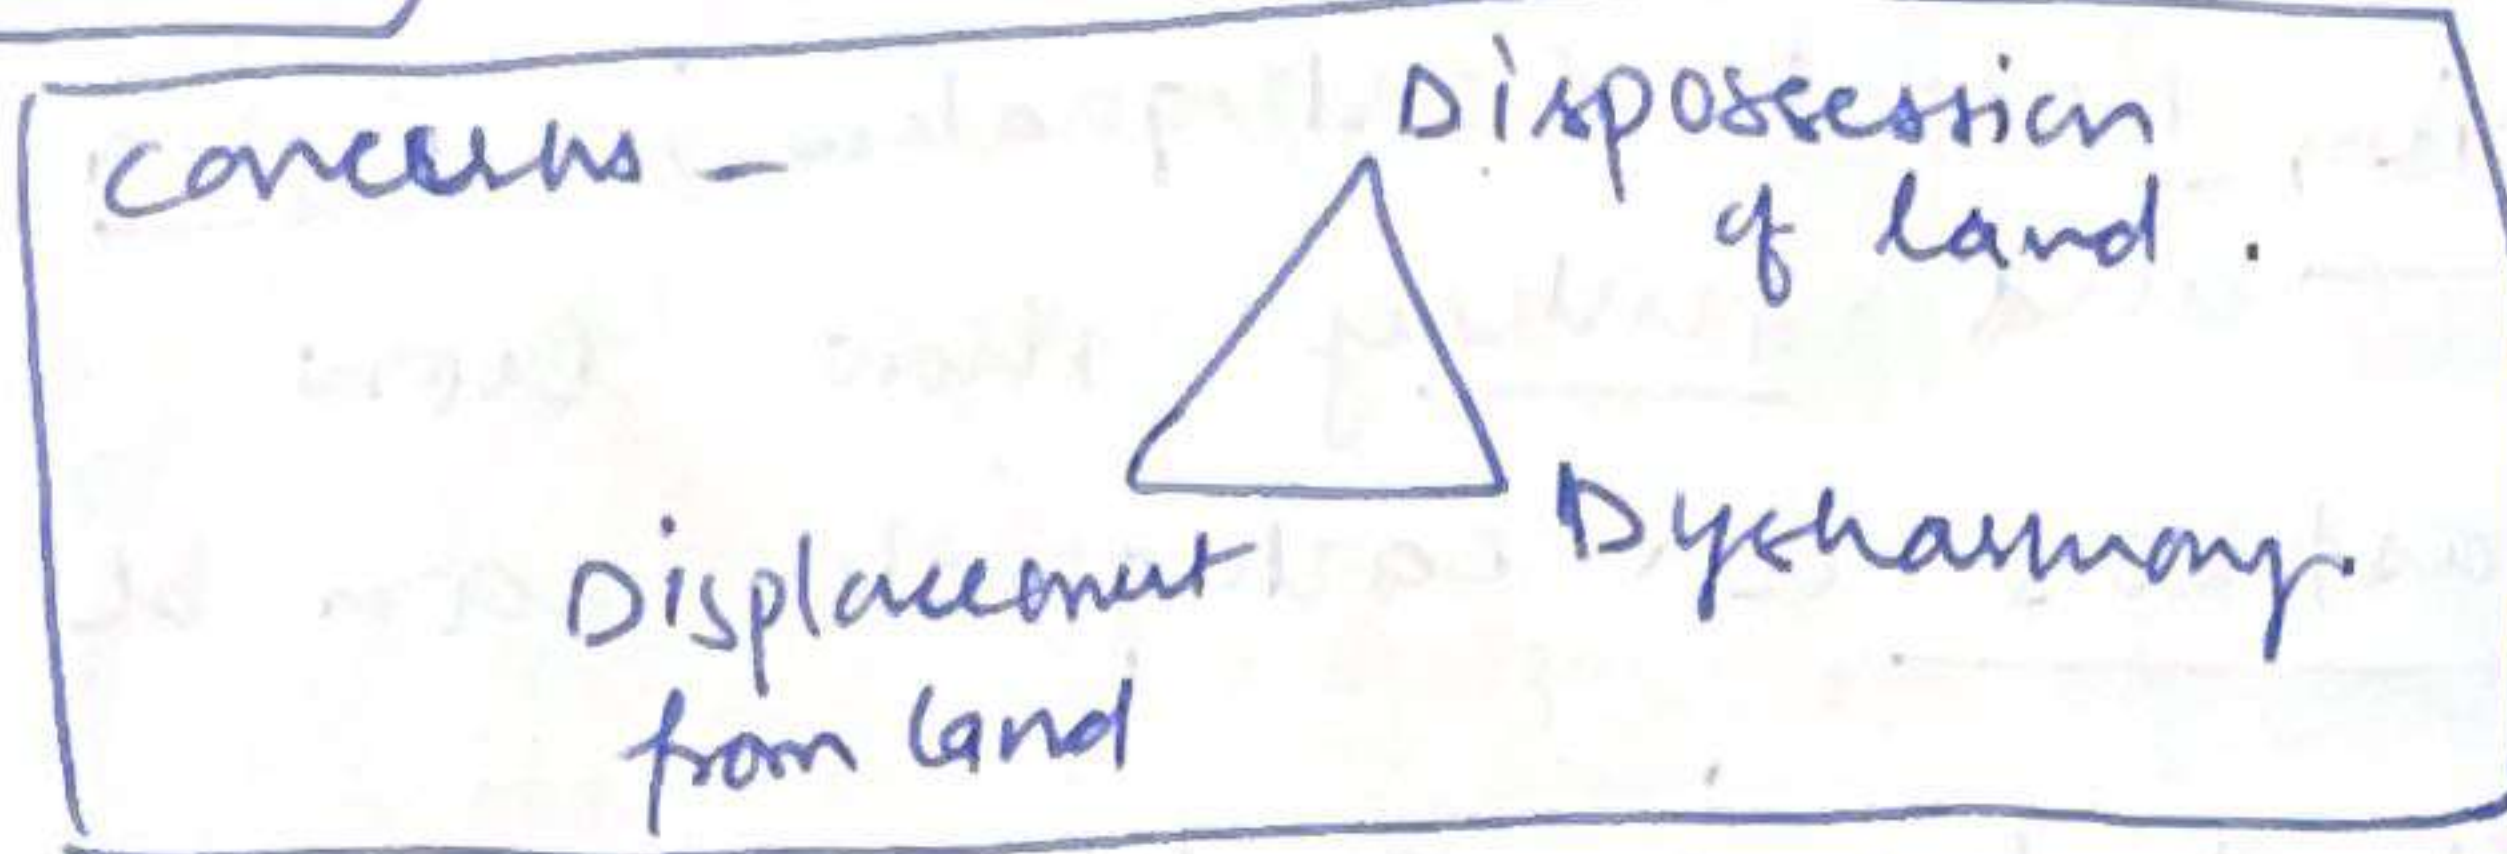 Concerns - Dispossession
of land.
Dysharmony.
Displacement
from land